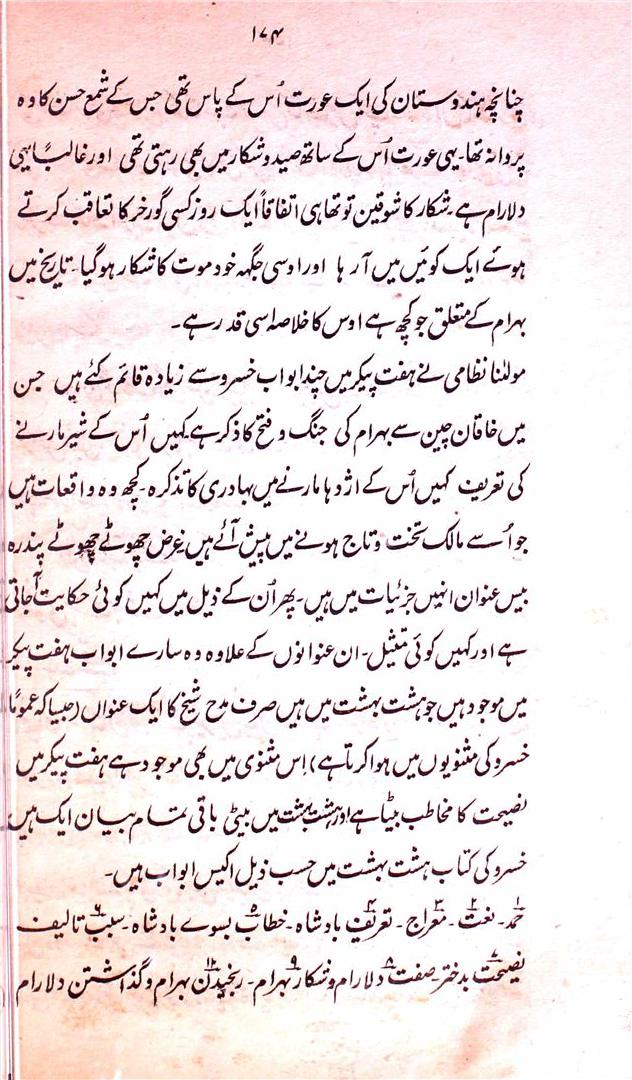 ۱۷۴
چنانچہ ہندوستان کی ایک عورت اُس کے پاس تھی جس کے شمع حسن کا وہ
پروانہ تھا۔ یہی عورت اُس کے ساتھ صید و شکار میں بھی رہتی تھی اور غالباً یہی
دلارام ہے۔ شکار کا شوقین تو تھا ہی اتفاقاً ایک روز کسی گورخر کا تعاقب کرتے
ہوئے ایک کوئیں میں آرہا اور اوسی جگہ خود موت کا شکار ہو گیا۔ تاریخ میں
بہرام کے متعلق جو کچھ ہے اوس کا خلاصہ اسی قدر ہے۔
مولٰنا نظامی نے ہفت پیکر میں چند ابواب خسرو سے زیادہ قائم کئے ہیں جن
میں خاقان چین سے بہرام کی جنگ و فتح کا ذکر ہے کہیں اُس کے شیر مارنے
کی تعریف کہیں اُس کے اژدہا مارنے میں بہادری کا تذکرہ۔ کچھ وہ واقعات ہیں
جو اُسے مالک تخت و تاج ہونے میں پیش آئے ہیں غرض چھوٹے چھوٹے پندرہ
بیس عنوان انہیں جزئیات میں ہیں۔ پھر اُن کے ذیل میں کہیں کوئی حکایت آجاتی
ہے اور کہیں کوئی تمثیل۔ ان عنوانوں کے علاوہ وہ سارے ابواب ہفت پیکر
میں موجود ہیں جو ہشت بہشت میں ہیں صرف مدح شیخ کا ایک عنوان (جیسا کہ عموماً
خسرو کی مثنویوں میں ہوا کرتا ہے) اِس مثنوی میں بھی موجود ہے ہفت پیکر میں
نصیحت کا مخاطب بیٹا ہے اور ہشت بہشت میں بیٹی باقی تمام بیان ایک ہیں۔
خسرو کی کتاب ہشت بہشت میں حسب ذیل اکیس ابواب ہیں۔
۱ حمد۔ ۲ نعت۔ ۳ معراج۔ ۴ تعریف بادشاہ۔ ۵ خطاب بسوے بادشاہ۔ ۶ سبب تالیف
۷ نصیحت بدختر۔ ۸ صفت دلارام و ۹ شکار بہرام۔ ۱۰ رنجیدن بہرام و گذاشتن دلارام